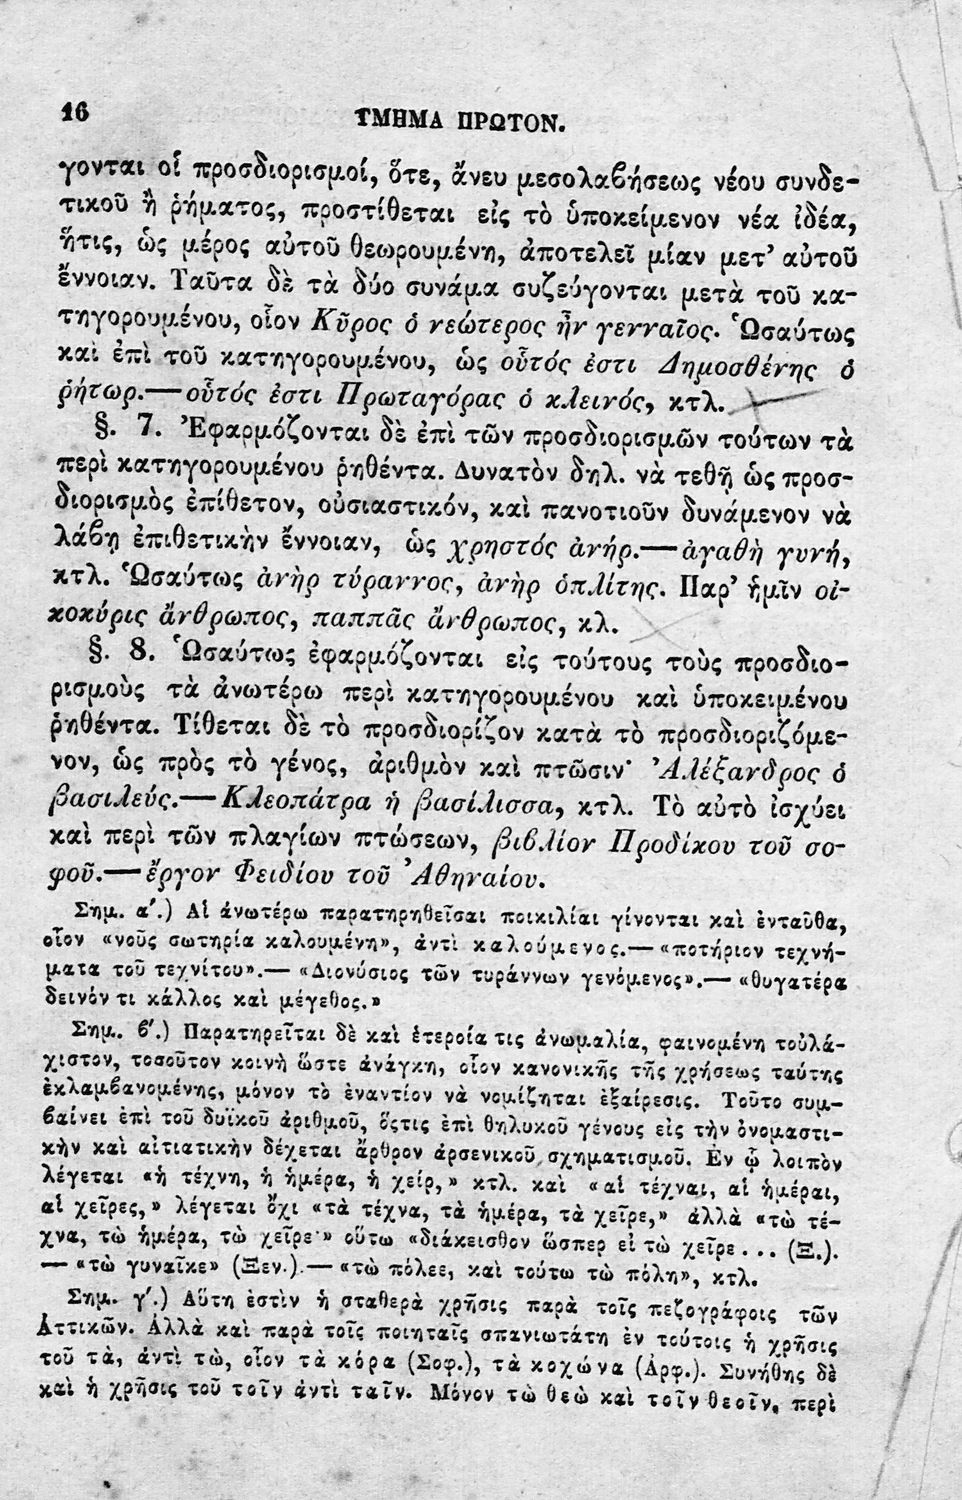 16
ΤΜΗΜΑ ΠΡΩΤΟΝ.
γονται οἱ προσδιορισμοί, ὅτε, ἄνευ μεσολαβήσεως νέου συνδε-
τικοῦ ἢ ῥήματος, προστίθεται εἰς τὸ ὑποκείμενον νέα ἰδέα,
ἥτις, ὡς μέρος αὐτοῦ θεωρουμένη, ἀποτελεῖ μίαν μετ' αὐτοῦ
ἔννοιαν. Ταῦτα δὲ τὰ δύο συνάμα συζεύγονται μετὰ τοῦ κα-
τηγορουμένου, οἷον Κῦρος ὁ νεώτερος ἦν γενναῖος. Ὡσαύτως
καὶ ἐπὶ τοῦ κατηγορουμένου, ὡς οὗτός ἐστι Δημοσθένης ὁ
ῥήτωρ.—οὗτός ἐστι Πρωταγόρας ὁ κλεινός, κτλ.
§. 7. Ἐφαρμόζονται δὲ ἐπὶ τῶν προσδιορισμῶν τούτων τὰ
περὶ κατηγορουμένου ῥηθέντα. Δυνατὸν δηλ. νὰ τεθῇ ὡς προσ-
διορισμὸς ἐπίθετον, οὐσιαστικόν, καὶ πανοτιοῦν δυνάμενον νὰ
λάβῃ ἐπιθετικὴν ἔννοιαν, ὡς χρηστός ἀνήρ.—ἀγαθὴ γυνή,
κτλ. Ὡσαύτως ἀνὴρ τύραννος, ἀνὴρ ὁπλίτης. Παρ' ἡμῖν οἰ-
κοκύρις ἄνθρωπος, παππᾶς ἄνθρωπος, κλ.
§. 8. Ὡσαύτως ἐφαρμόζονται εἰς τούτους τοὺς προσδιο-
ρισμοὺς τὰ ἀνωτέρω περὶ κατηγορουμένου καὶ ὑποκειμένου
ῥηθέντα. Τίθεται δὲ τὸ προσδιορίζον κατὰ τὸ προσδιοριζόμε-
νον, ὡς πρὸς τὸ γένος, ἀριθμὸν καὶ πτῶσιν· Ἀλέξανδρος ὁ
βασιλεύς.—Κλεοπάτρα ἡ βασίλισσα, κτλ. Τὸ αὐτὸ ἰσχύει
καὶ περὶ τῶν πλαγίων πτώσεων, βιβλίον Προδίκου τοῦ σο-
φοῦ.—ἔργον Φειδίου τοῦ Ἀθηναίου.
Σημ. α΄.) Αἱ ἀνωτέρω παρατηρηθεῖσαι ποικιλίαι γίνονται καὶ ἐνταῦθα,
οἷον «νοῦς σωτηρία καλουμένη», ἀντὶ καλούμενος.— «ποτήριον τεχνή-
ματα τοῦ τεχνίτου».— «Διονύσιος τῶν τυράννων γενόμενος».— «θυγατέρα
δεινόν τι κάλλος καὶ μέγεθος.»
Σημ. β΄.) Παρατηρεῖται δὲ καὶ ἑτεροία τις ἀνωμαλία, φαινομένη τοὐλά-
χιστον, τοσοῦτον κοινὴ ὥστε ἀνάγκη, οἷον κανονικῆς τῆς χρήσεως ταύτης
ἐκλαμβανομένης, μόνον τὸ ἐναντίον νὰ νομίζηται ἐξαίρεσις. Τοῦτο συμ-
βαίνει ἐπὶ τοῦ δυϊκοῦ ἀριθμοῦ, ὅςτις ἐπὶ θηλυκοῦ γένους εἰς τὴν ὀνομαστι-
κὴν καὶ αἰτιατικὴν δέχεται ἄρθρον ἀρσενικοῦ σχηματισμοῦ. Ἐν ᾧ λοιπὸν
λέγεται «ἡ τέχνη, ἡ ἡμέρα, ἡ χείρ,» κτλ. καὶ «αἱ τέχναι, αἱ ἡμέραι,
αἱ χεῖρες,» λέγεται ὄχι «τὰ τέχνα, τὰ ἡμέρα, τὰ χεῖρε,» ἀλλὰ «τὼ τέ-
χνα, τὼ ἡμέρα, τὼ χεῖρε·» οὕτω «διάκεισθον ὥσπερ εἰ τὼ χεῖρε... (Ξ.).
— «τὼ γυναῖκε» (Ξεν.).— «τὼ πόλεε, καὶ τούτω τὼ πόλη», κτλ.
Σημ. γ΄.) Αὕτη ἐστὶν ἡ σταθερὰ χρῆσις παρὰ τοῖς πεζογράφοις τῶν
Ἀττικῶν. Ἀλλὰ καὶ παρὰ τοῖς ποιηταῖς σπανιωτάτη ἐν τούτοις ἡ χρῆσις
τοῦ τὰ, ἀντὶ τὼ, οἷον τὰ κόρα (Σοφ.), τὰ κοχώνα (Ἀρφ.). Συνήθης δὲ
καὶ ἡ χρῆσις τοῦ τοῖν ἀντὶ ταῖν. Μόνον τὼ θεὼ καὶ τοῖν θεοῖν, περὶ